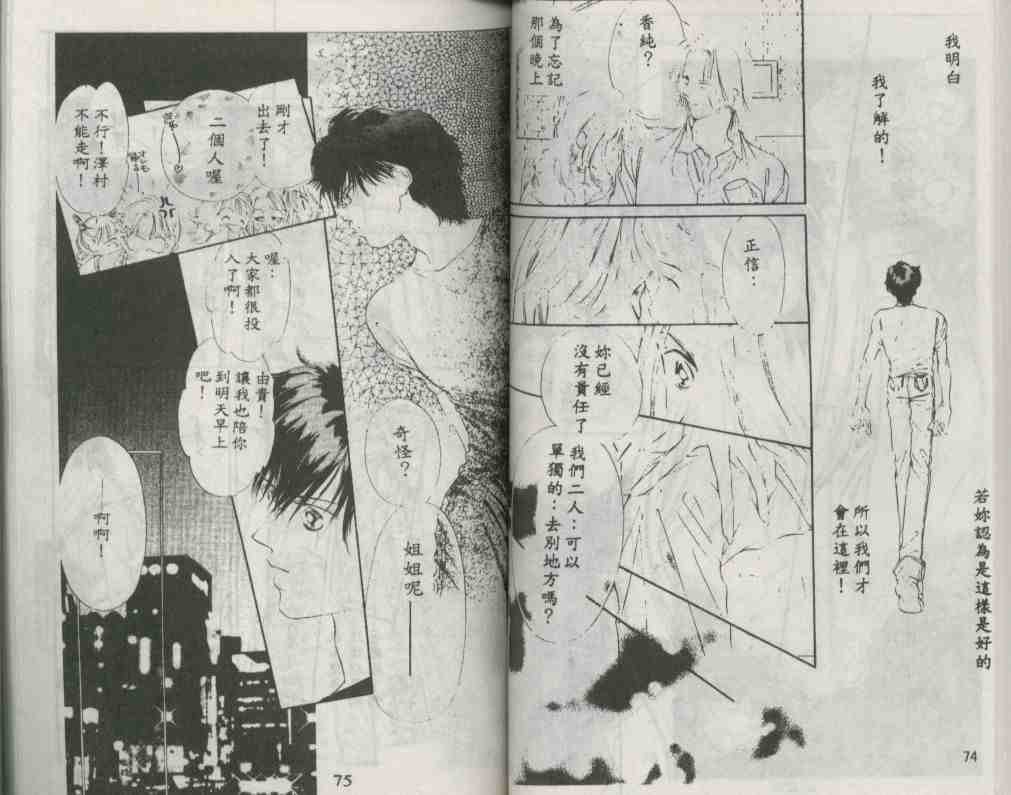 我明白
我了解的！
若妳認為是這樣是好的
所以我們才
會在這裡！
香純？
為了忘記
那個晚上
正信：
妳已經
沒有責任了
我們二人：可以
單獨的：去別地
方嗎？
74
剛才
出去了！
二個人喔
不行！澤村
不能走啊！
喔：
大家都很投
入了啊！
奇怪？
姐
姐呢——
由貴！
讓我也陪你
到明天早上
吧！
——啊啊！
75